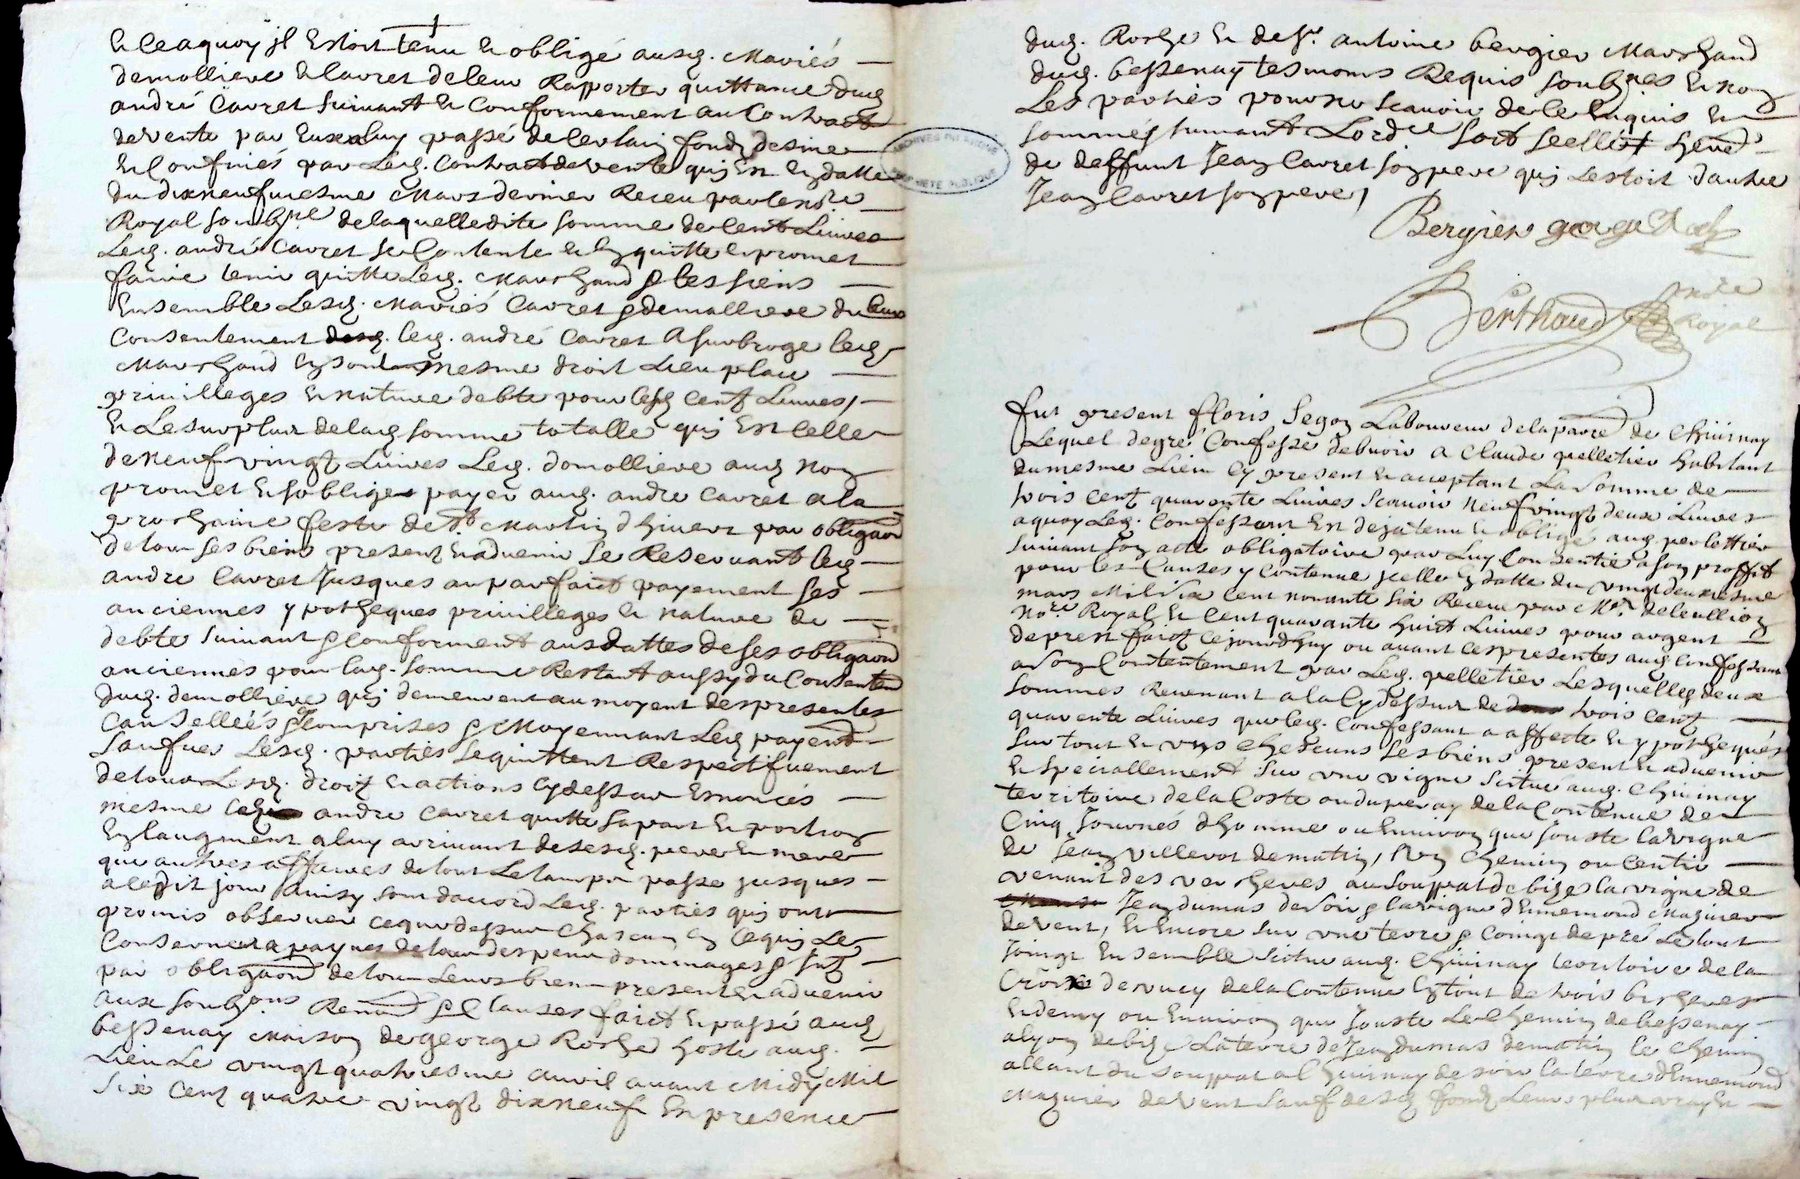 et ce a quoy jl Estoit tenu et obligé ausd. Mariés
demolliere et Cavret de leur Rapporter quittance dud
andré Cavret suivant et Conformement au Contract
de vente par Eux a luy passé de certain fondz designe
et Confinés par Led. Contract de vente qui Est en datte
du dixneufuiesme Mars dernier Receu par le nore
Royal soubzne de laquelle dite somme de Cent Liures
Led. andré Cavret se Contente et en quitte et promet
faire tenir quitte Led. Marchand & les siens
Ensemble Lesd. Mariés Cavret & demolliere du leur
Consentement led. andré Cavret A subroge led
Marchand en son mesme droit Lieu place
priuilleges et nature debte pour lesd Cent Liures,
et Le surplus de lad somme totalle qui Est Celle
de neuf vingt Liures Led. demolliere aud nom
promet et soblige payer aud. andre Cavret a la
prochaine feste de St Martin dhiuert par obligaon
de tous ses biens present et aduenir se Reseruant led
andre Cavret Jusques au parfaict payement ses
anciennes ypotheques priuilleges et nature de
debte suiuant & Conforment aus dattes de ses obligaons
anciennes pour lad. somme Restant aussy du Consentemt
dud. demolliere qui demeurent au moyent des presentes
Cansellées & Comprises & Moyennant Led payemt
sauf ues Lesd. parties se quittent Respectifuement
de tous Lesd. droitz et actions cy dessus Enoncés
mesme andre Cavret quitte sa part et portion
En laugment a luy arriuant de sesd. pere et mere
que autres affaires de tout Le temps passe jusques
a cedit jour Ainsy sont dacord Led. parties qui ont
promis obseruer ce que dessus chascun en ce qui Le
Conserne a paynes de tous despens dommages & Intz
par obligaons de tous Leurs biens present et aduenir
aux soubzons Renons & Clauses faict et passé aud
bessenay Maison de george Roche hoste aud.
Lieu Le vingt quatriesme auril auant Midy Mil
six Cent quatre vingt dixneuf En presence
dud. Roche et de sr. antoine bergier Marchand
dud. bessenay tesmoins Requis soubznes et non
Les parties pour ne scauoir de ce Enquis et
sommés suiuant Lordce soit seellé
de deffunt Jean Cavret son pere qui Lestoit dautre
Jean Cavret son pere,
Bergier george Roche
Berthaud nore
Royal
fut present floris Segon Laboureur de la parre de Cheuinay
Lequel de gré Confesse debuoir a Claude pelletier habitant
du mesme Lieu Cy present et acceptant La somme de
trois Cent quarante Liures scauoir neuf vingt deux Liures
a quoy Led. Confessant Est deja tenu et obligé aud. pelletier
suiuant son acte obligatoire par Luy Consentie a son proffit
pour les Causes y Contenue jcelle en datte du vingt deuxiesme
mars Mil six Cent nonante six Receu par Me
nore Royal et Cent quarante huict Liures pour argent
de prest faict ce jourdhuy ou auant ces presentes aud Confessant
a son Contentement par Led. pelletier Lesquelles deux
sommes Reuenant a la Cy dessus de trois Cent
quarante Liures que led. Confessant a affecte et ypothequés
sur tout et vngs chescuns ses biens present et aduenir
et speciallement sur vne vigne sictue aud. Cheuinay
territoire de la Coste ou du peray de la Contenue de
Cinq Journés dhomme ou Enuiron que Jouste la vigne
de Jean villerot de matin, vn chemin ou Centier
venant des vercheres au souppat de bize la vigne de
Jean dumas de soir & la vigne dEnnemond Magnier
de vent, et Encore sur vne terre & Coingt de pré Le tout
Joingt Ensemble sictue aud. Cheuinay territoire de la
Croix de vucy de la Contenue En tout de trois bicherées
et demy ou Enuiron que Jouste Le Chemin de bessenay
a lyon de bize La terre de Jean dumas de matin le Chemin
allant du souppat a Cheuinay de soir la terre dEnnemond
Magnier de vent sauf desd. fondz Leurs plus vrays